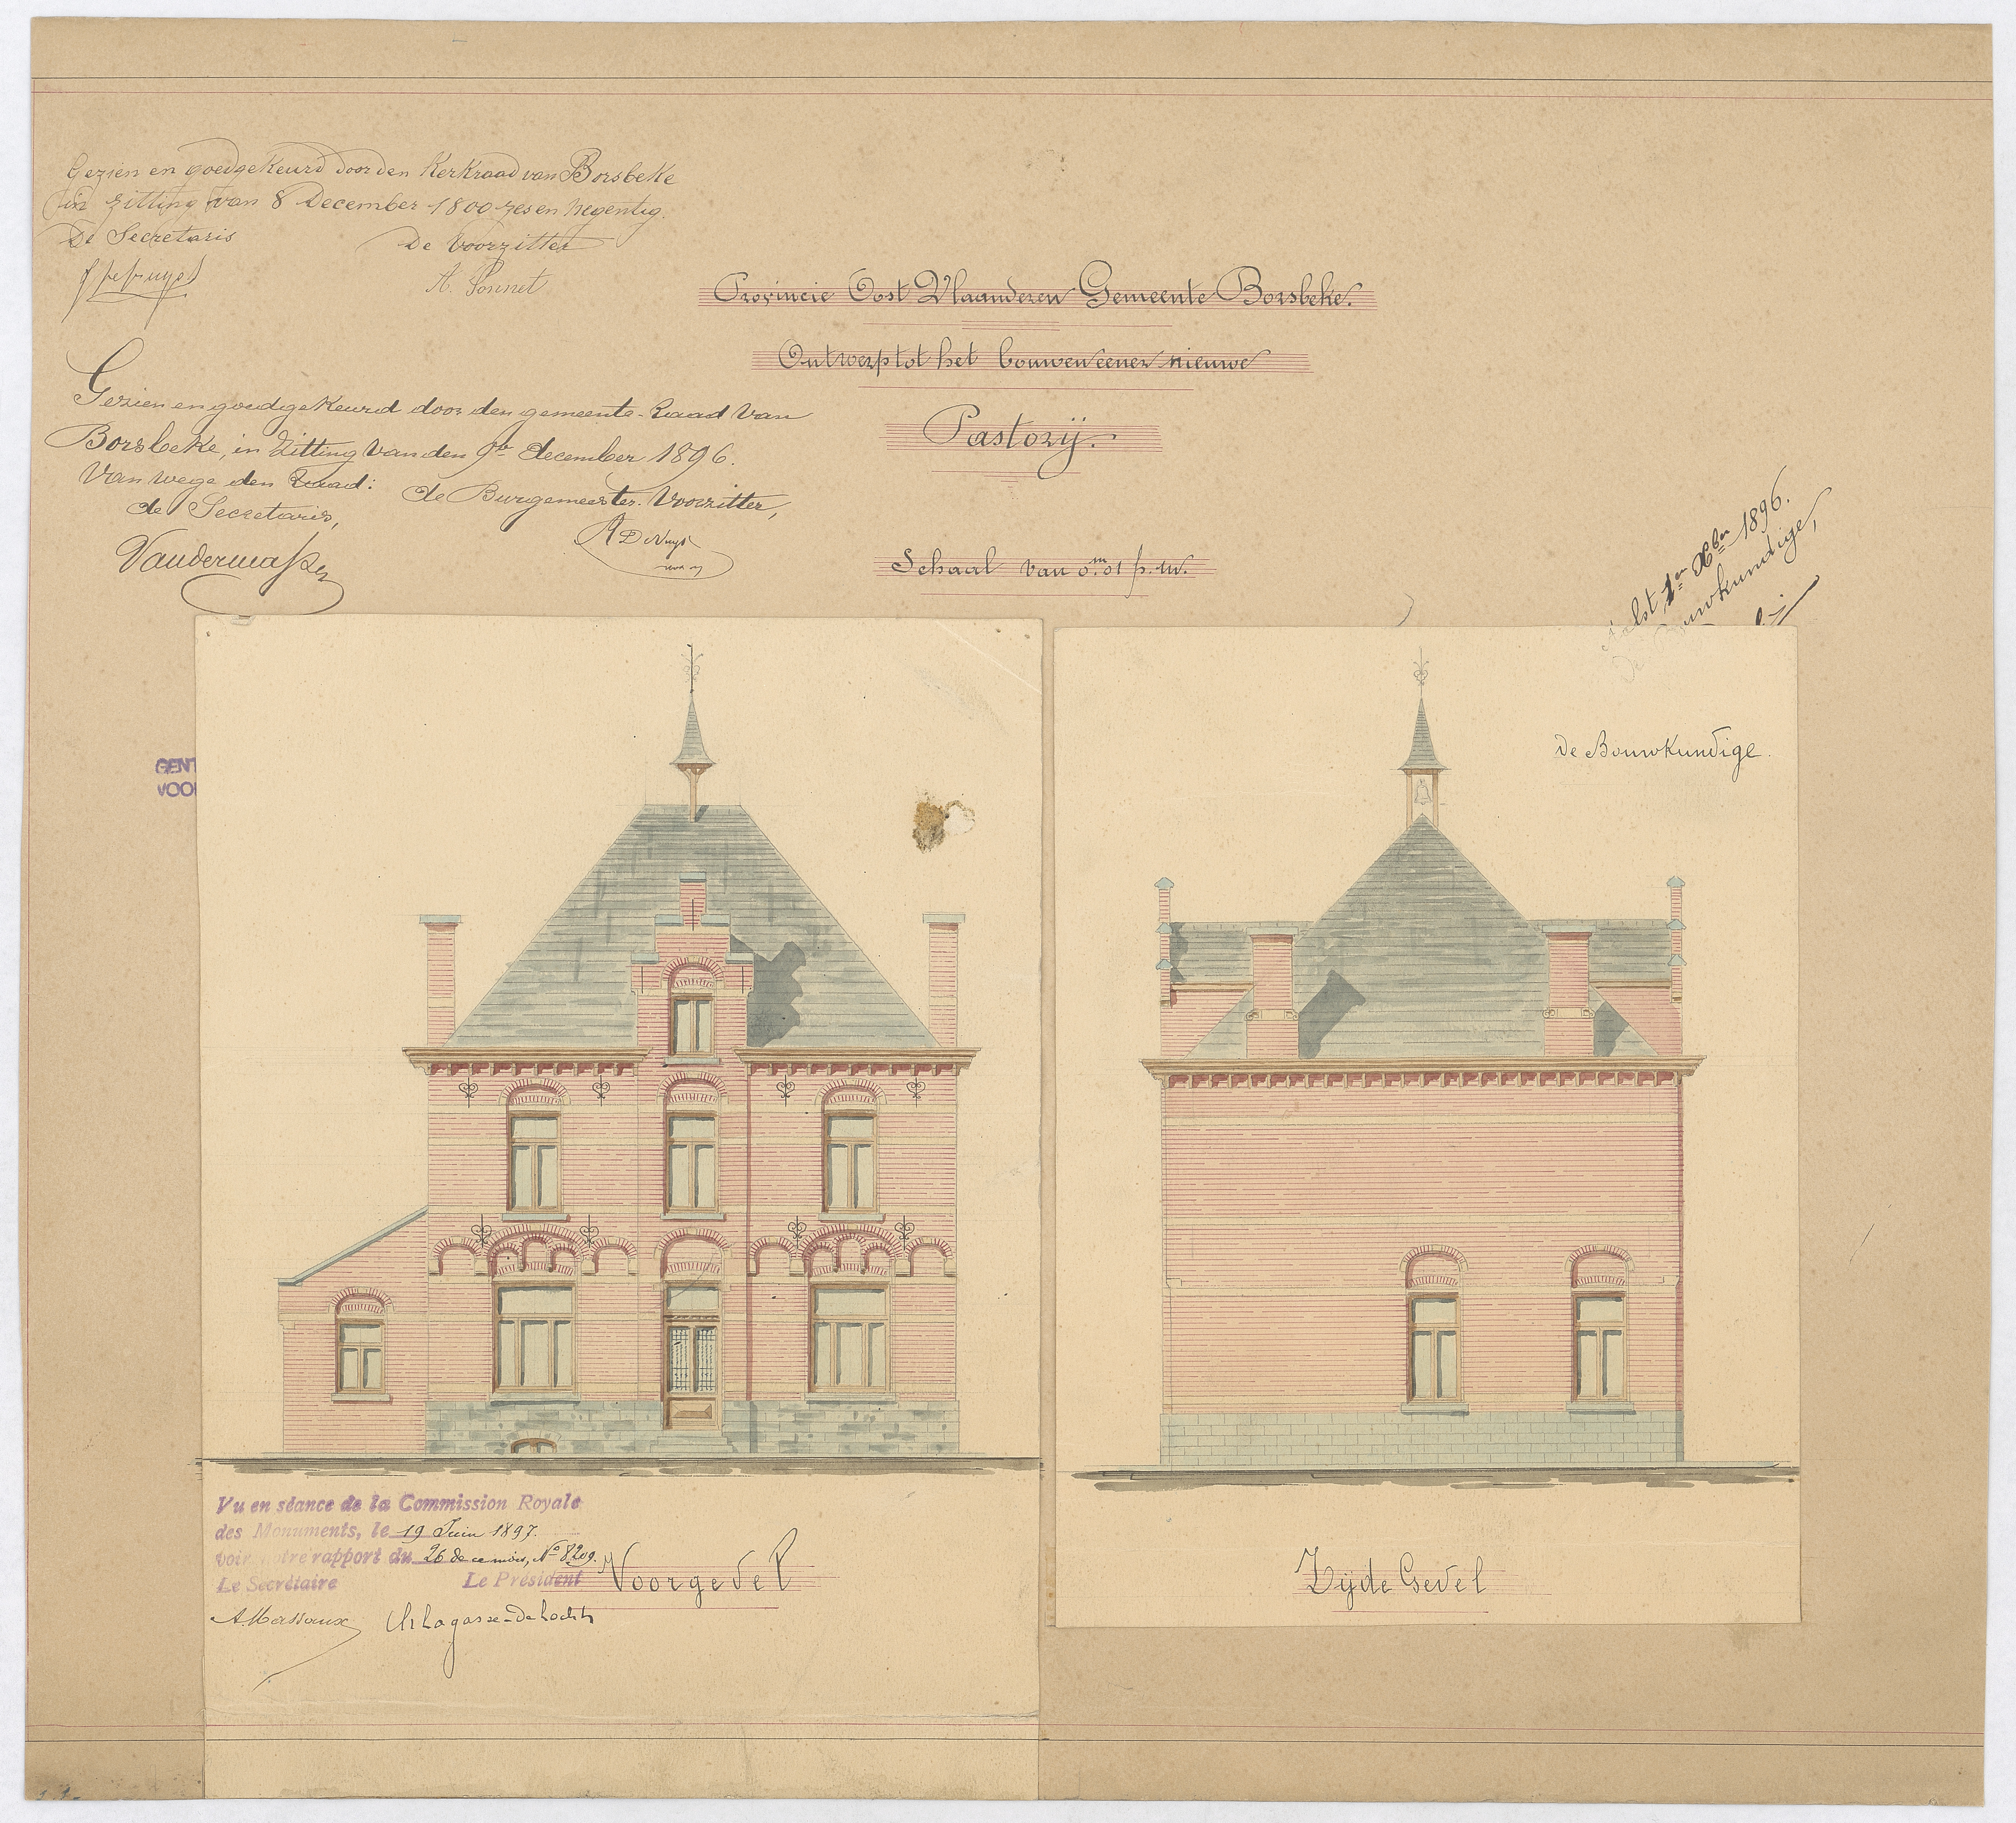 Gezien en goedgekeurd door den Kerkraad van Borsbeke
in zitting van 8 December 1800 zes en negentig.
De Secretaris De Voorzitter
A. Sonnet
Gezien en goedgekeurd door den gemeente-Raad van
Borsbeke, in zitting van den 9de december 1896.
Van wege den Raad:
de Secretaris, de Burgemeester-Voorzitter,
Provincie Oost Vlaanderen Gemeente Borsbeke.
Ontwerp tot het bouwen eener nieuwe
Pastorij.
Schaal van 0m.01 p. m.
Aalst 1en Xber 1896.
De Bouwkundige,
GENT
VOO
De Bouwkundige.
Vu en séance de la Commission Royale
des Monuments, le 19 Juin 1897.
voir notre rapport du 26 de ce mois, No 8209.
Le Secrétaire Le Président
A. Massaux Ch Lagasse-de Locht
Voorgevel
Zijde Gevel